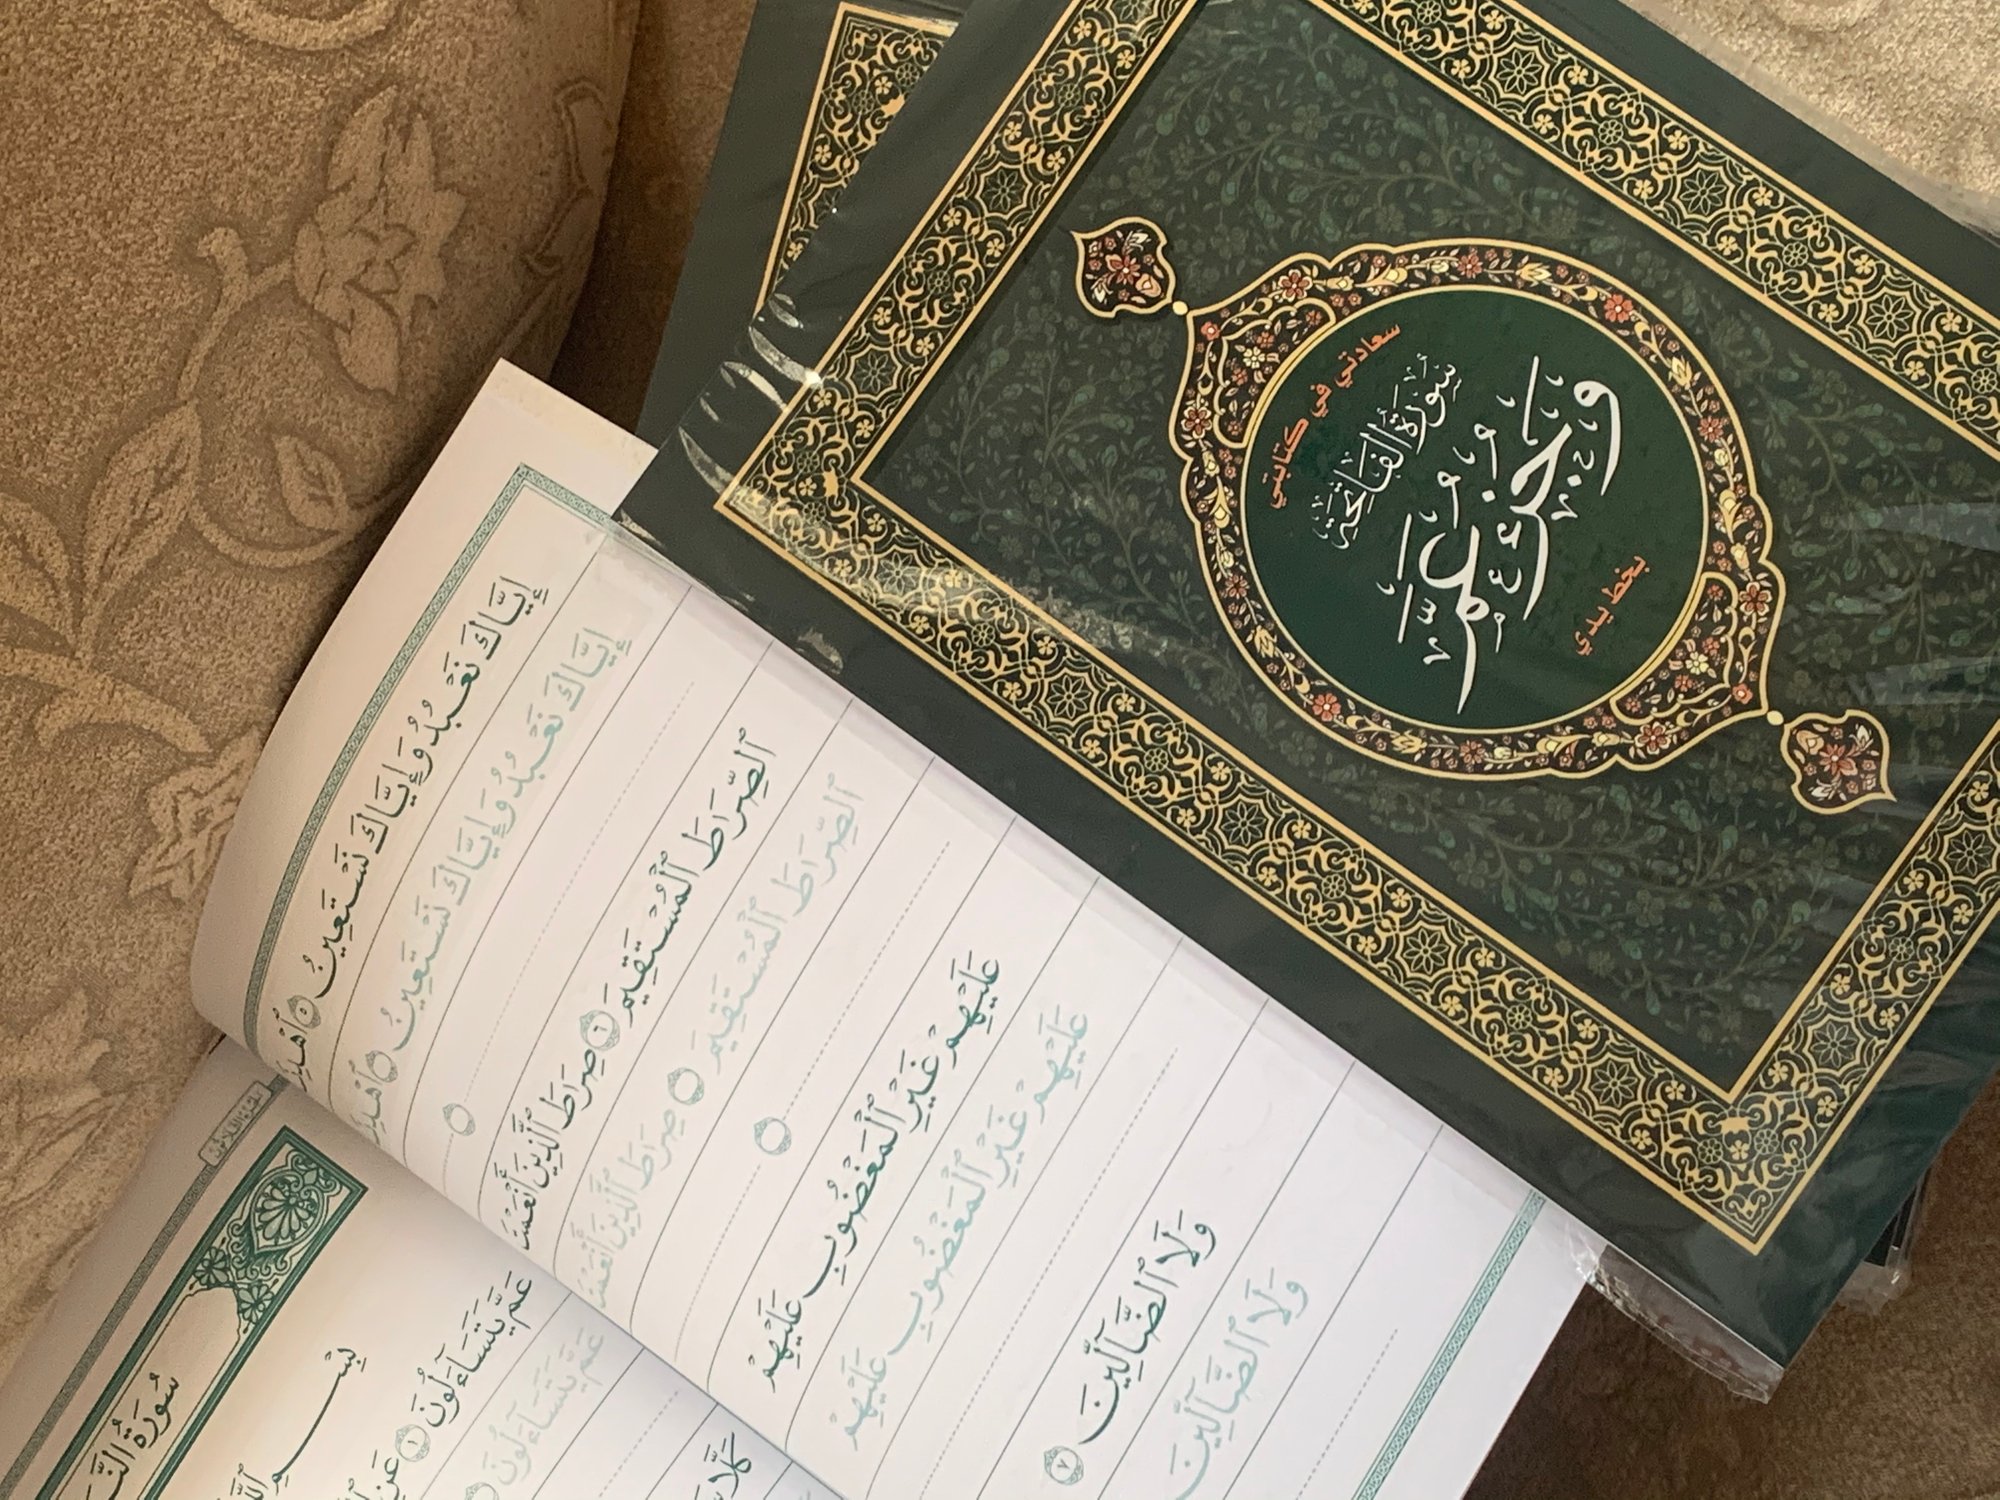 سعادتي في كتابتي
سورة الفاتحة
وجزء عم
بخط يدي
إِيَّاكَ نَعْبُدُ وَإِيَّاكَ نَسْتَعِينُ ٥ ٱهْدِنَا
إِيَّاكَ نَعْبُدُ وَإِيَّاكَ نَسْتَعِينُ ٱهْدِنَا
ٱلصِّرَٰطَ ٱلْمُسْتَقِيمَ ٦ صِرَٰطَ ٱلَّذِينَ أَنْعَمْتَ
ٱلصِّرَٰطَ ٱلْمُسْتَقِيمَ صِرَٰطَ ٱلَّذِينَ أَنْعَمْتَ
عَلَيْهِمْ غَيْرِ ٱلْمَغْضُوبِ عَلَيْهِمْ
عَلَيْهِمْ غَيْرِ ٱلْمَغْضُوبِ عَلَيْهِمْ
وَلَا ٱلضَّآلِّينَ ٧
وَلَا ٱلضَّآلِّينَ
سُورَةُ
بِسْمِ
عَمَّ يَتَسَآءَلُونَ ١ عَنِ
عَمَّ يَتَسَآءَلُونَ
كَلَّا